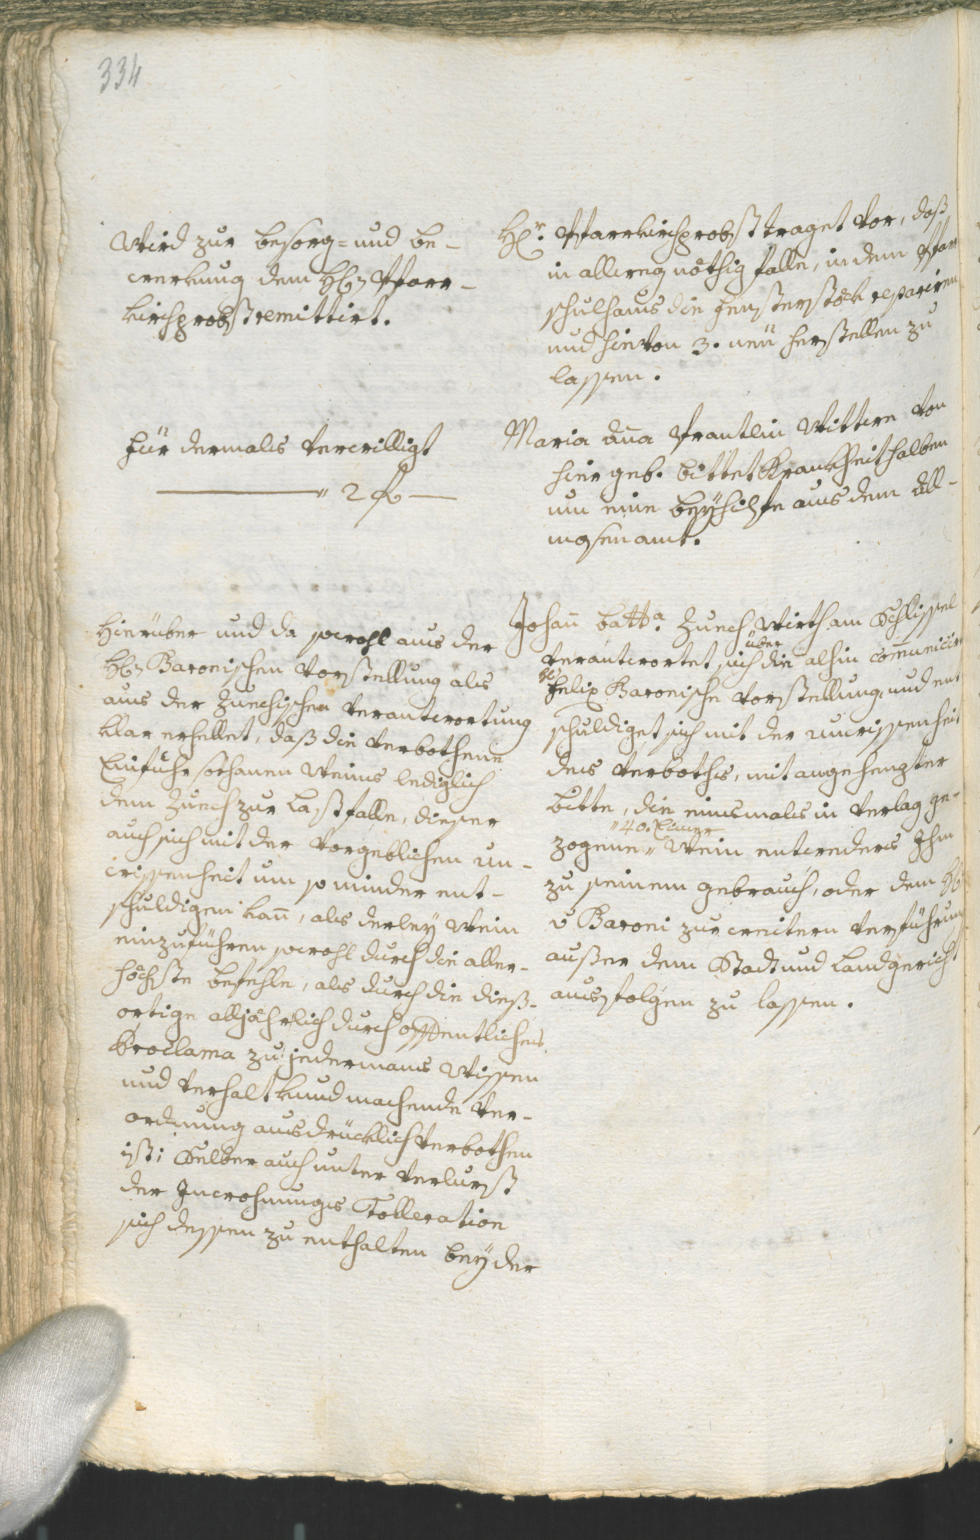 334
Wird zur besorg= und be-
werkung dem H: Pfarr-
kirchprobst remittirt.
Hr. Pfarrkirchprobst traget vor, daß
in allweg nöthig falle, in dem Pfarr
schulhaus die fensterstöck repariren
und hievon 3. neü herstellen zu
lassen.
für dermals verwilligt
" 2 f
Maria Aña Wittwe von
hier geb. bittet Krankheit halben
um eine beÿhilfe aus dem All-
mosenamt.
Hierüber und da sowohl aus der
H: Baronischen Vorstellung als
aus der Zuechischen Verantwortung
klar erhellet, daß die verbothene
Einfuhr sothanen Weins lediglich
dem Zuech zur Last falle, dieser
auch sich mit der vorgeblichen un-
wissenheit um so minder ent-
schuldigen kañ, als derleÿ Wein
einzuführen sowohl durch die aller-
höchste befehle, als durch die dieß-
ortige alljährlich durch offentliches
Proclama zu jedermans Wissen
und Verhalt kundmachende Ver-
ordnung ausdrücklich verbothen
ist; Selber auch unter Verlurst
der Inwohnungs Tolleration
sich dessen zu enthalten beÿ der
Johañ batta. Zuech Wirth am Schlissel
verantwortet sich über die alhin comunicirte
Felix Baronische Vorstellung, und ent
schuldiget sich mit der unwissenheit
des Verboths, mit angehengter
bitte, die einsmals in Verlag ge-
zogene " 40. Eimer " Wein entweders Ihm
zu seinem gebrauch, oder dem H:
v Baroni zur weitern Verführung
außer dem Stadt und Landgericht
ausfolgen zu lassen.